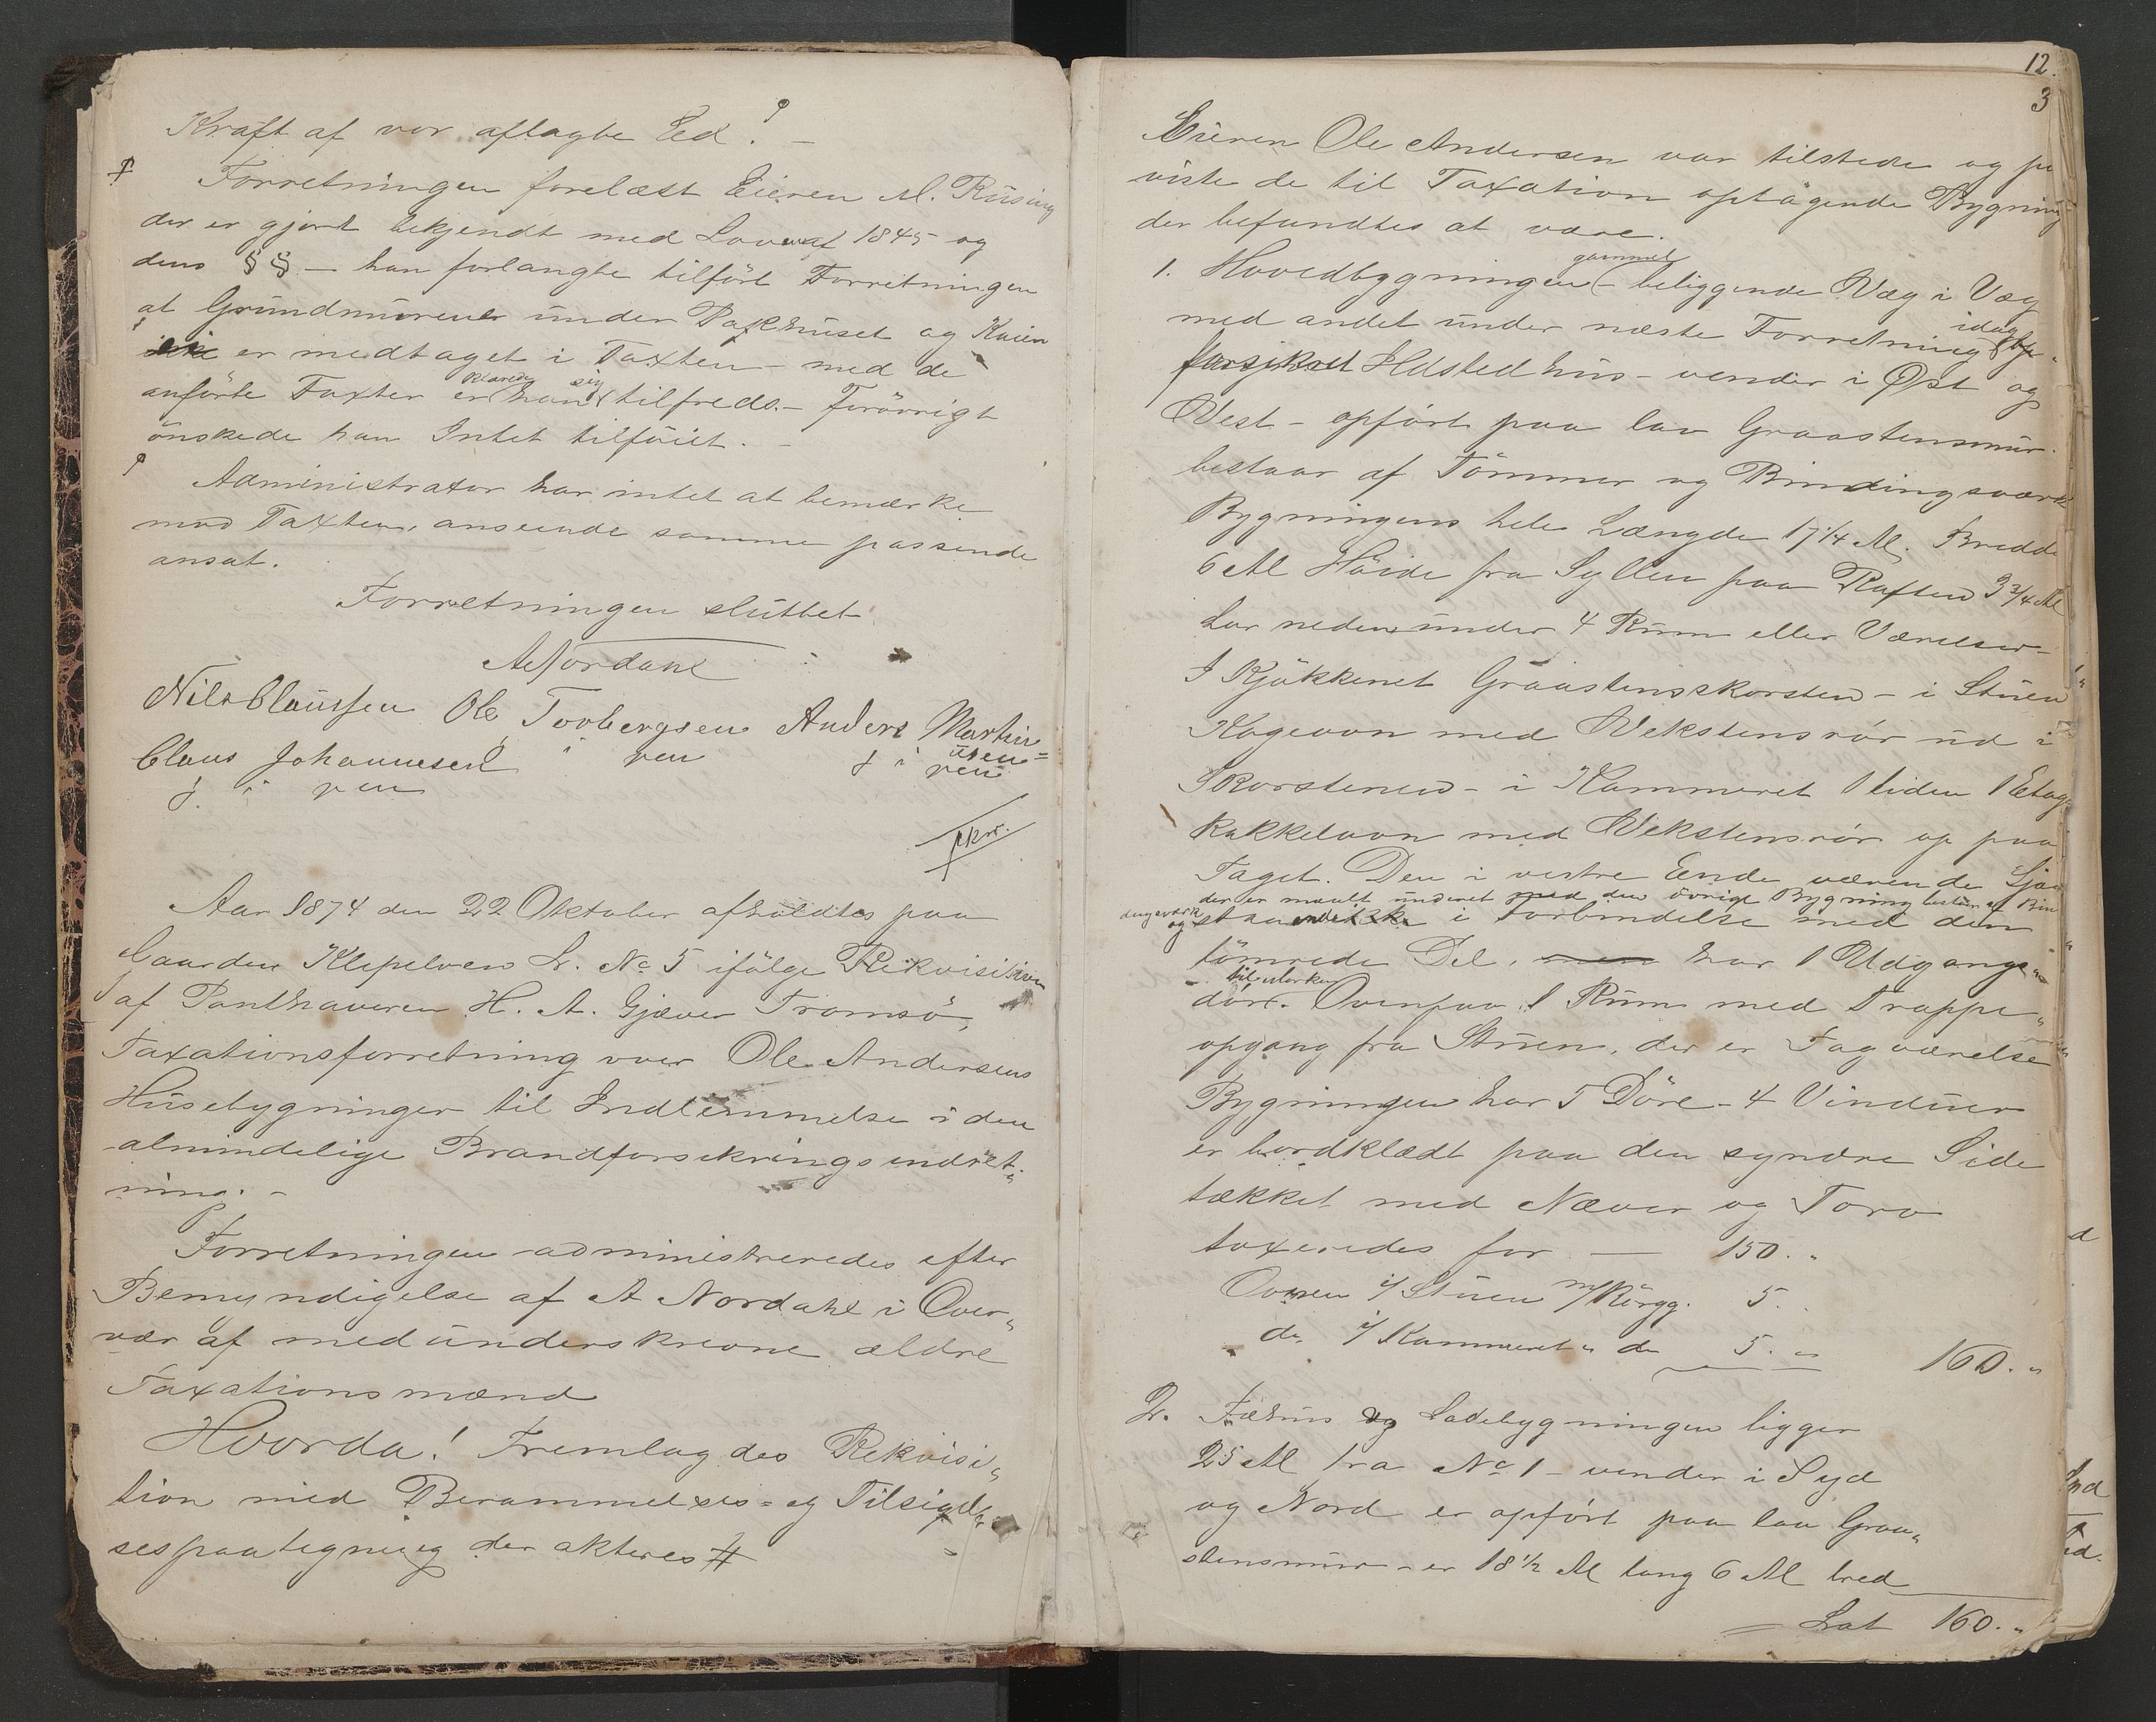 Kraft af vor aflagte Eed. –
Forretningen forelæst Eieren M. Rüsing
der er gjort bekjendt med Loven af 1845 og
dens §§ – han forlangte tilført Forretningen
at Grundmurene under Pakhuset og Kaien
er medtaget i Taxten – med de
anførte Taxter klarede han sig tilfreds. – forövrigt
önskede han Intet tilföiet. –
Administrator har intet at bemærke
mod Taxten, anseende samme passende
ansat.
Forretningen sluttet
A Nordahl
Nils Claussen Ole Torbergsen Anders Martin
Claus Johannesen i pen usen
J. i pen J i pen
Aar 1874 den 22 Oktober afholdtes paa
Gaarden Klepelven L. No 5 ifölge Rekvisition
af Panthaveren H. A. Gjæver Tromsö,
Taxationsforretning over Ole Andersens
Husebygninger til Indlemmelse i den
almindelige Brandforsikringsindret-
ning. –
Forretningen administreredes efter
Bemyndigelse af A Nordahl i Over-
vær af medunderskrevne ældre
Taxationsmænd
Hvorda! Fremlagdes Rekvisi-
tion med Berammelses- og Tilsigel-
sespaategning der akteres #
12.
3
Eieren Ole Andersen var tilstede og på
viste de til Taxation optagende Bygning
der befundtes at være.
gammel
1. Hovedbygningen – beliggende Væg i Væg
idag
med andet under næste Forretning
forsikret Ildstedhus – vender i Øst og
Vest – opført paa lav Graastensmur.
bestaar af Tömmer og Bindingsværk
Bygningens hele Længde 17 1/4 Al. Bredde
6 Al Höide fra Syllen paa Raften 3 3/4 Al
har nedenunder 4 Rum eller Værelser –
I Kjökkenet Graastensskorsten – i Stuen
Kogeovn med Vekstensrör ud i
Skorstenen – i Kammeret 1 liden 1 Etag
Kakkelovn med Vekstensrör op paa
Taget. Den i vestre Ende værende
der er maalt underet med den övrige Bygning bestaar af Bin
dingsværk og i Forbindelse med den
tömrede Del, har 1 Udgangs-
til Marken
dör. Ovenpaa 1 Rum med Trappe-
opgang fra Stuen, der er Tagværelse
Bygningen har 5 Döre – 4 Vinduer
er bordklædt paa den syndre Side
tækket med Næver og Torv
taxeredes for — 150. "
Ovnen i/ Stuen m/ Rörgg. 5. "
do i/ Kammeret " do 5. " 160. "
2. Fæhus og Ladebygningen ligger
25 Al fra No 1 – vender i Syd
og Nord er opfört paa lav Graa-
stensmur – er 18 1/2 Al lang 6 Al bred
Lat 160. "